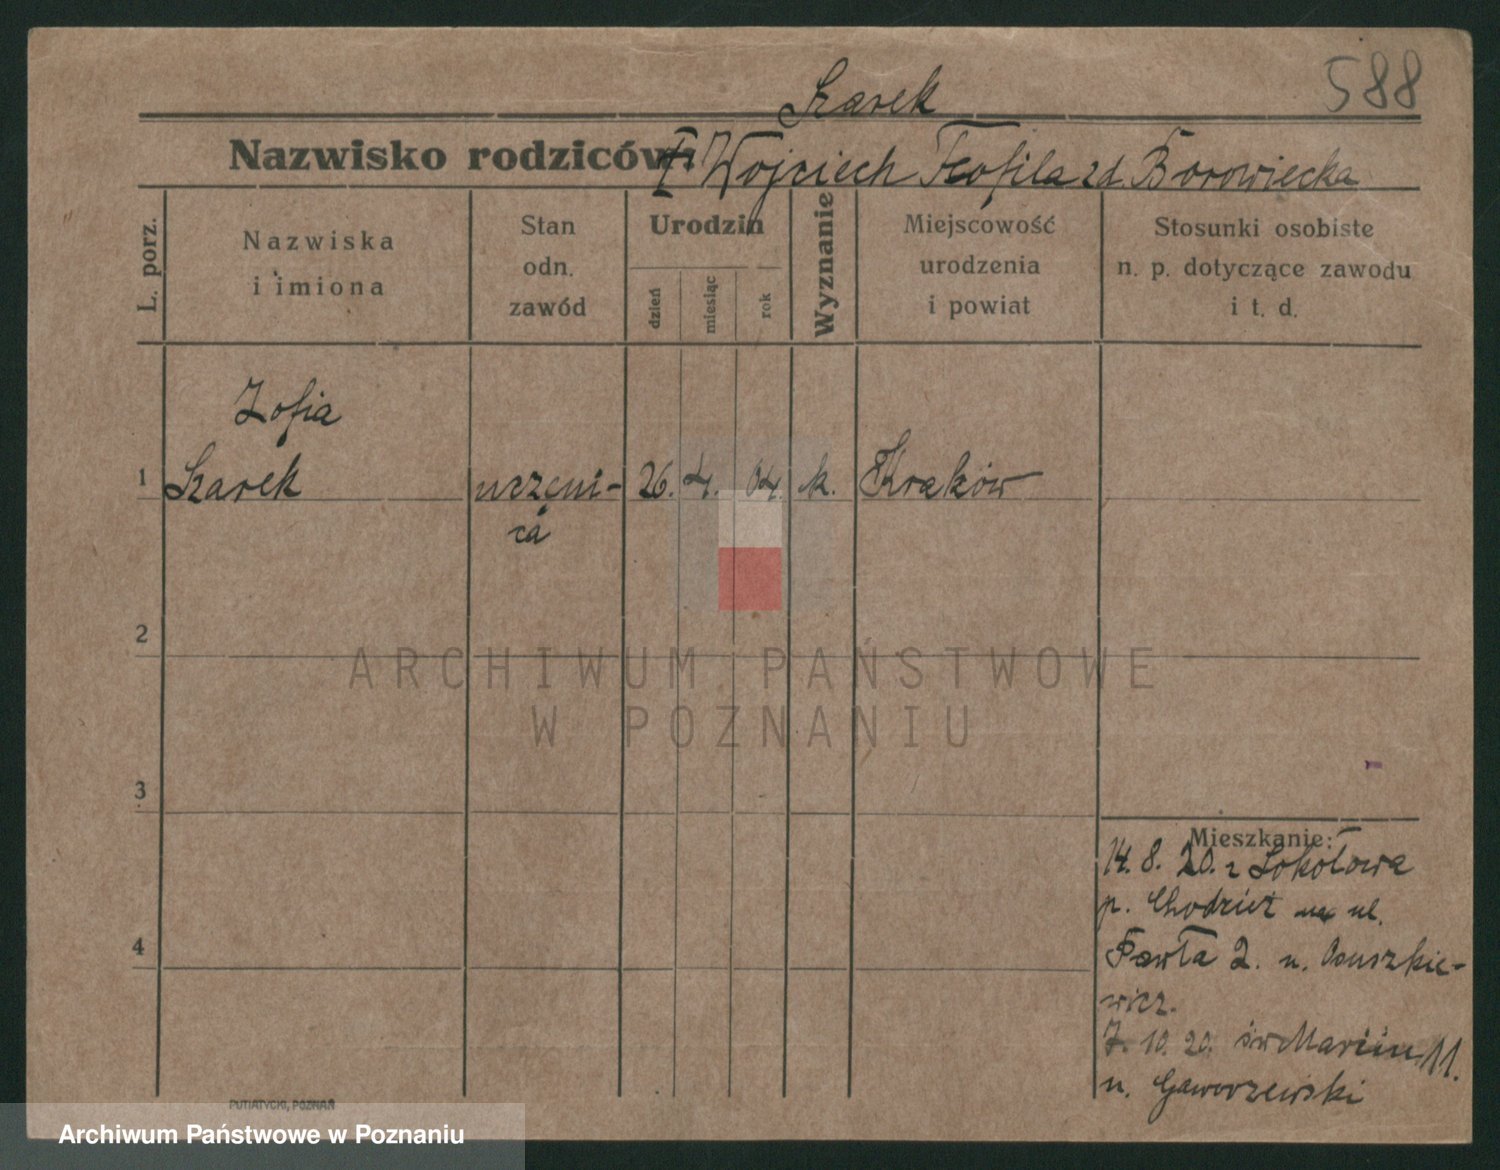 588
Szarek
Nazwisko rodziców: Wojciech Teofila zd. Borowiecka
L. porz.
Nazwiska
i imiona
Stan
odn.
zawód
Urodzin
dzień
miesiąc
rok
Wyznanie
Miejscowość
urodzenia
i powiat
Stosunki osobiste
n. p. dotyczące zawodu
i t. d.
Zofia
1 Szarek uczeni- 26. 4. 04. k. Kraków
ca
2
ARCHIWUM PAŃSTWOWE
W POZNANIU
3
Mieszkanie:
14. 8. 20. z Sokołowa
p. Chodzież na ul.
Pawła 2. u.
wicz.
7. 10. 20. św Marcin 11.
u. Gaworzewski
4
PUTIATYCKI, POZNAŃ
Archiwum Państwowe w Poznaniu